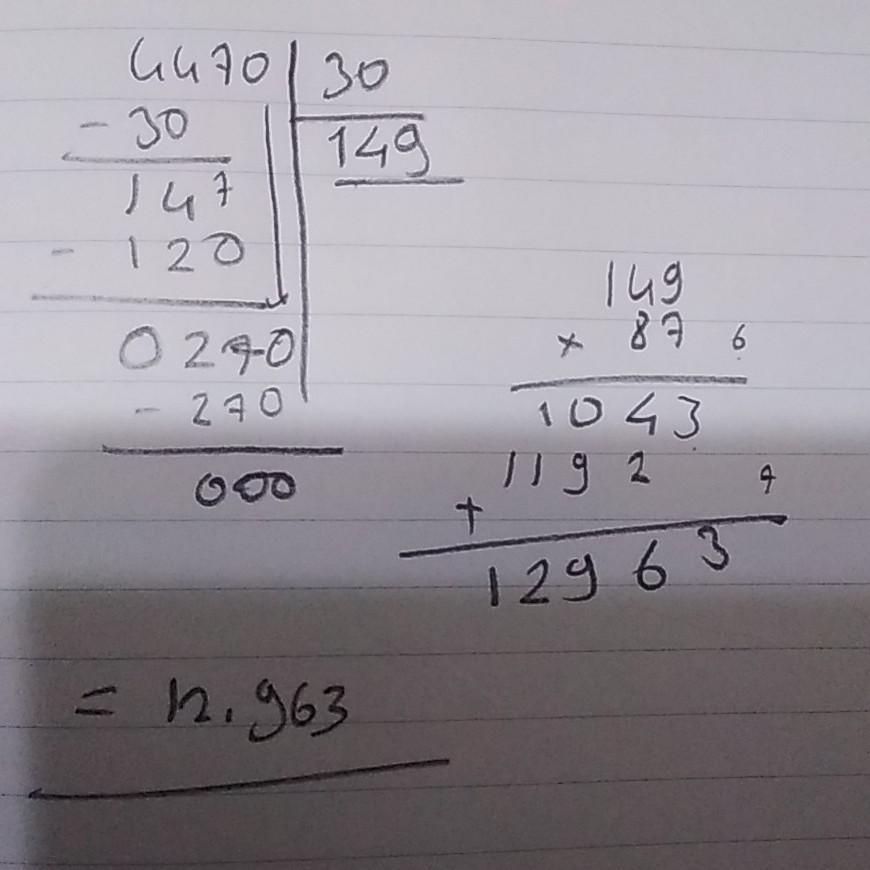 4470 30
- 30
149
147
- 120
0270
- 270
000
149
× 87 6
1043
+ 1192 7
12963
= 12.963